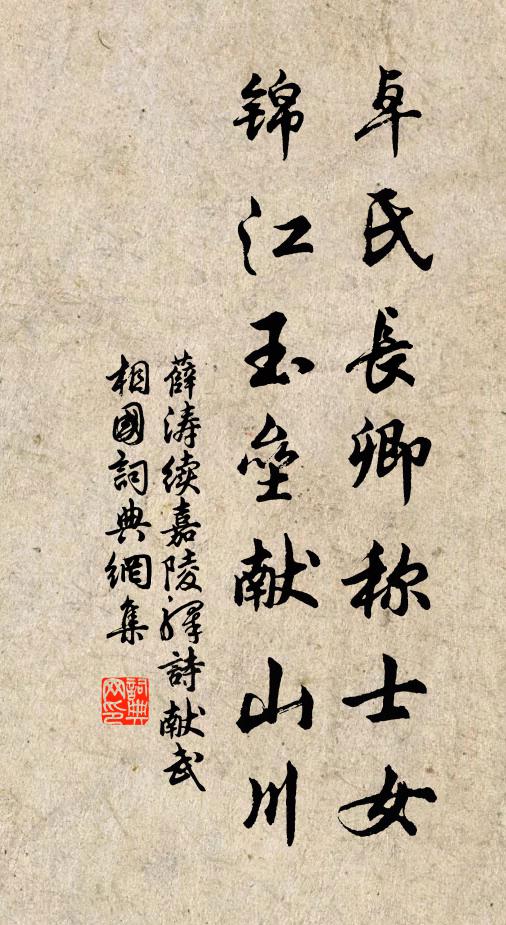 卓氏長卿称士女
锦江玉垒献山川
薛涛续嘉陵驿詩献武
相國詞典網集
詞典网印